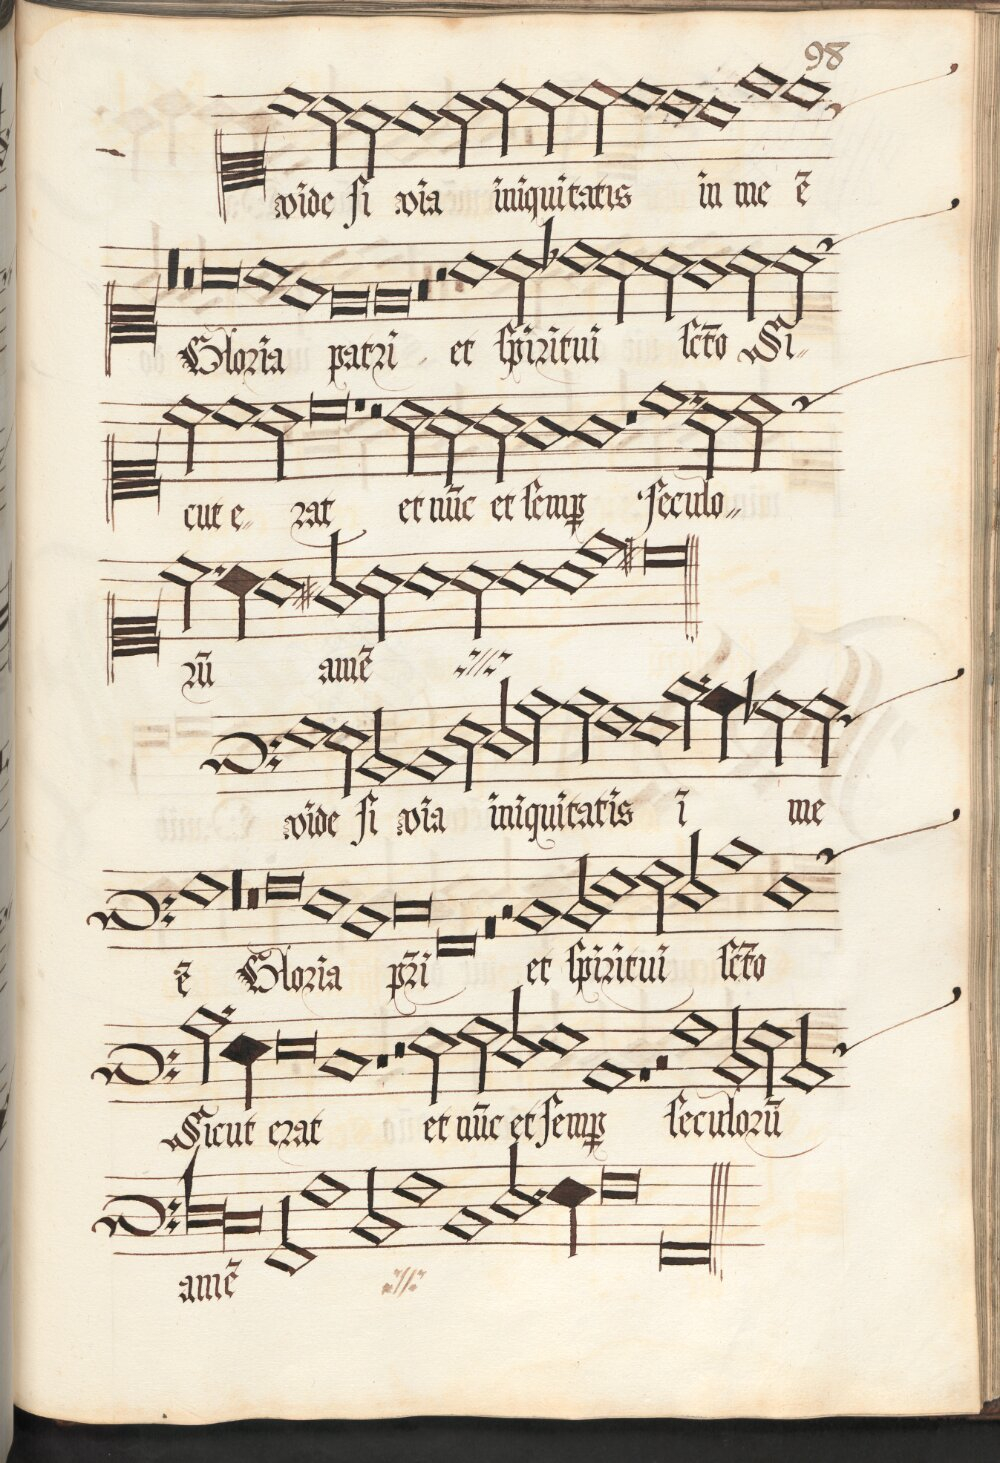 98
vide si via iniquitatis in me ē
Gloria patri et spiritui scto Si„
cut e„ rat et nūc et semp seculo„
rū amē
vide si via iniquitatis ī me
ē Gloria pri et spiritui scto
Sicut erat et nūc et semp seculorū
amē